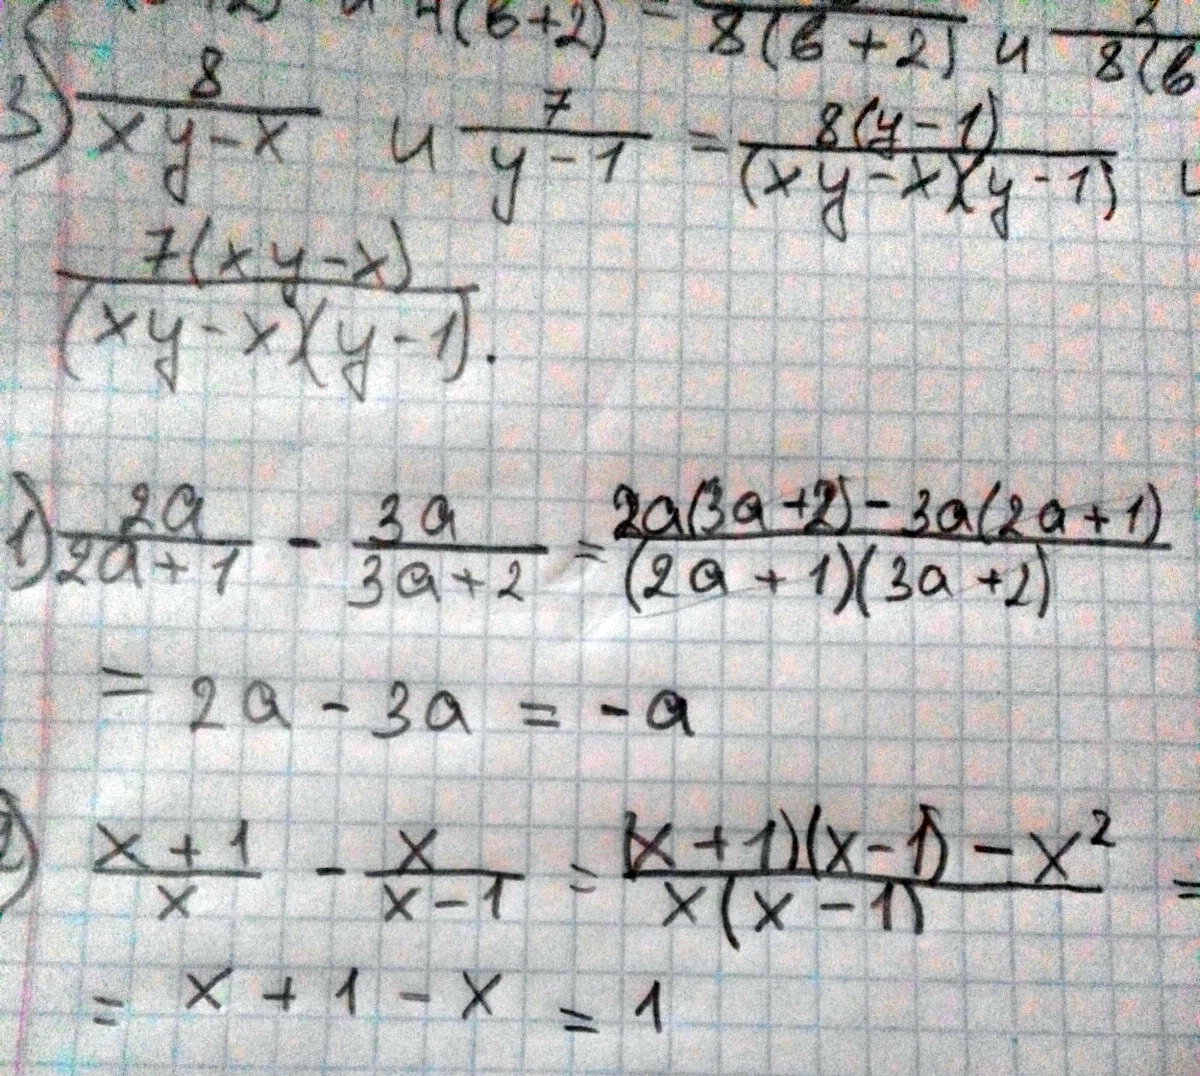 4(b+2) = 8(b+2) и 8(b
3) 8/(xy-x) и 7/(y-1) = 8(y-1)/((xy-x)(y-1)) и
7(xy-x)/((xy-x)(y-1)).
1) 2a/(2a+1) - 3a/(3a+2) = (2a(3a+2)-3a(2a+1))/((2a+1)(3a+2))
= 2a - 3a = -a
2) (x+1)/x - x/(x-1) = ((x+1)(x-1)-x²)/(x(x-1)) =
= x + 1 - x = 1